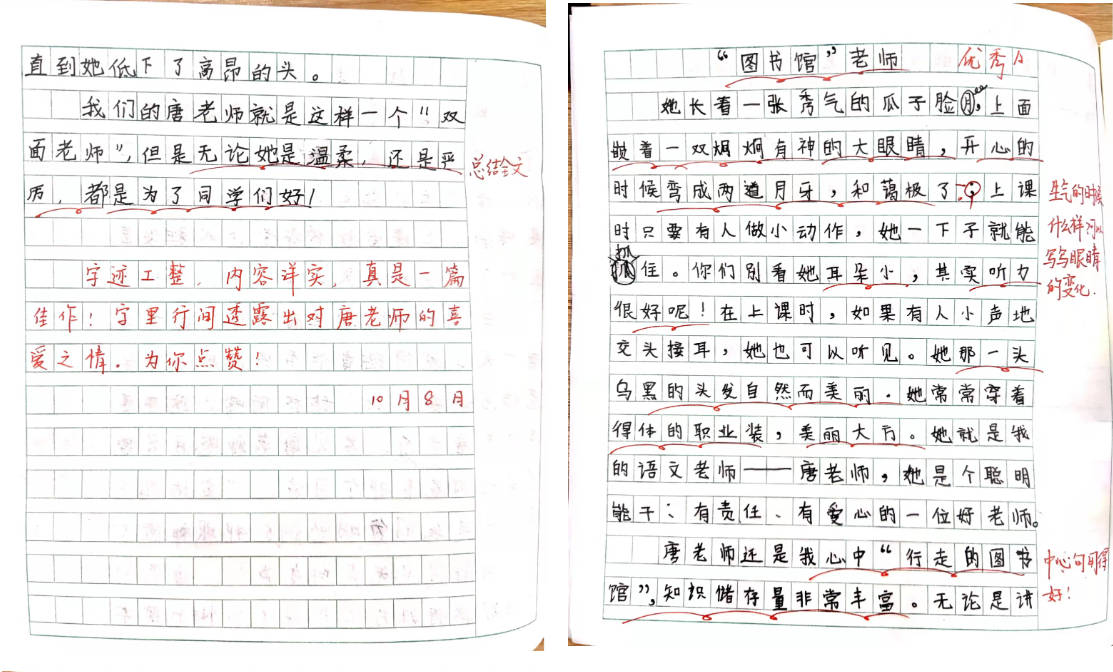 直到她低下了高昂的头。
我们的唐老师就是这样一个“双
面老师”,但是无论她是温柔,还是严
厉,都是为了同学们好!
总结全文
字迹工整,内容详实,真是一篇
佳作!字里行间透露出对唐老师的喜
爱之情。为你点赞!
10月8日
“图书馆”老师
优秀A
她长着一张秀气的瓜子脸,上面
嵌着一双炯炯有神的大眼睛,开心的
时候弯成两道月牙,和蔼极了。上课
时只要有人做小动作,她一下子就能
抓住。你们别看她耳朵小,其实听力
很好呢!在上课时,如果有人小声地
交头接耳,她也可以听见。她那一头
乌黑的头发自然而美丽。她常常穿着
得体的职业装,美丽大方。她就是我
的语文老师——唐老师,她是个聪明
能干、有责任、有爱心的一位好老师。
唐老师还是我心中“行走的图书
馆”,知识储存量非常丰富。无论是讲
生气的时候
什么样可以
写写眼睛
的变化.
中心句用得
好!